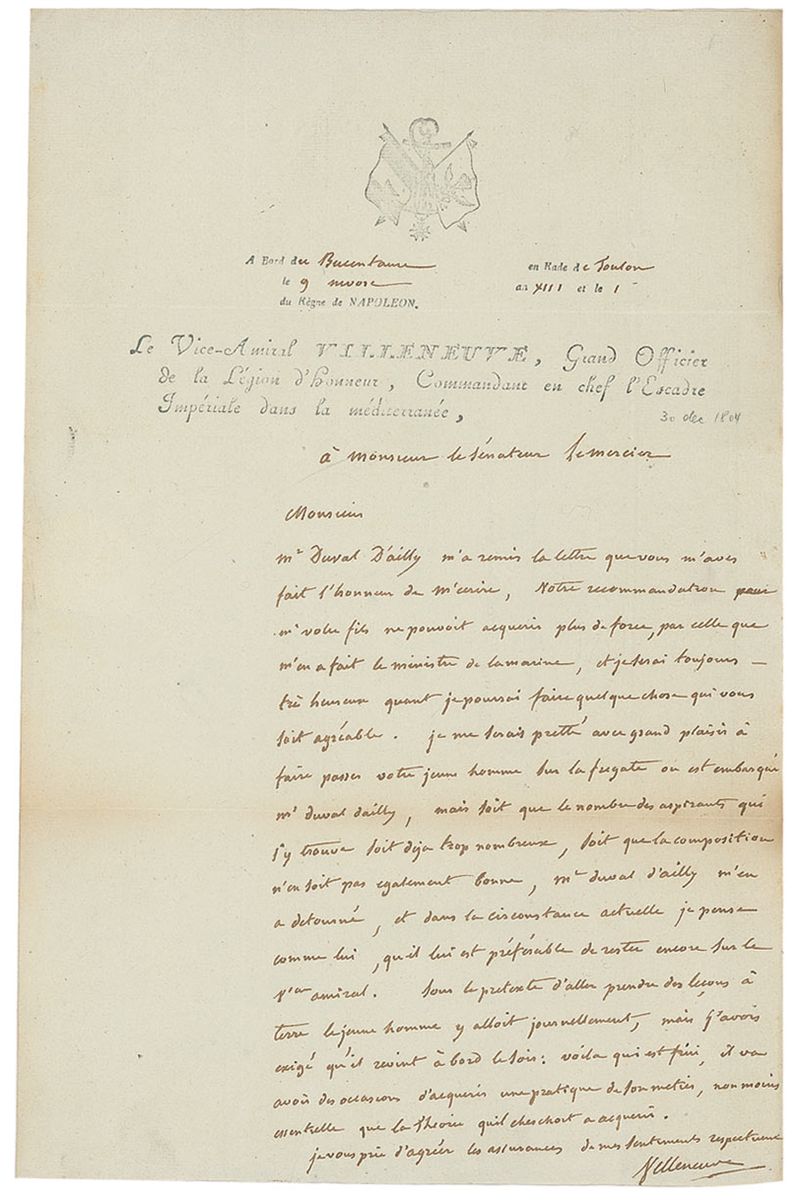 A Bord du Bucentaure
en Rade de Toulon
le 9 nivose
an XIII et le 1
du Règne de NAPOLEON.
Le Vice-Amiral VILLENEUVE, Grand Officier
de la Légion d'Honneur, Commandant en chef l'Escadre
Impériale dans la méditerranée,
30 dec 1804
à Monsieur le Sénateur Lemercier
Monsieur
Mr Duval D'ailly m'a remis la lettre que vous m'aves
fait l'honneur de m'ecrire, Votre recommandation pour
mr votre fils ne pouvoit acquerir plus de force, par celle que
m'en a fait le ministre de la marine, et je serai toujours
très heureux quant je pourai faire quelque chose qui vous
soit agréable. je me serais pretté avec grand plaisir à
faire passer votre jeune homme sur la fregate ou est embarqué
mr duval dailly, mais soit que le nombre des aspirants qui
s'y trouve soit deja trop nombreux, soit que la composition
n'en soit pas egalement bonne, Mr duval d'ailly m'en
a detourné, et dans la circonstance actuelle je pense
comme lui, qu'il lui est préférable de rester encore sur le
Vau amiral. Sous le pretexte d'aller prendre des leçons à
terre le jeune homme y alloit journellement, mais j'avois
exigé qu'il revint à bord le soir: voila qui est fini, il va
avoir des occasions d'acquerir une pratique de son metier, non moins
essentielle que la théorie qu'il cherchoit a acquerir.
je vous prie d'agréer les assurances de mes sentements respectueux
Villeneuve